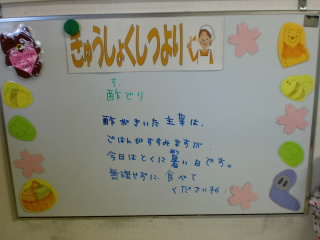 きゅうしょくしつより
す
酢どり
酢がきいた主菜は、
ごはんがすすみますが
今日はとくに暑い日です。
無理せずに食べて
くださいね